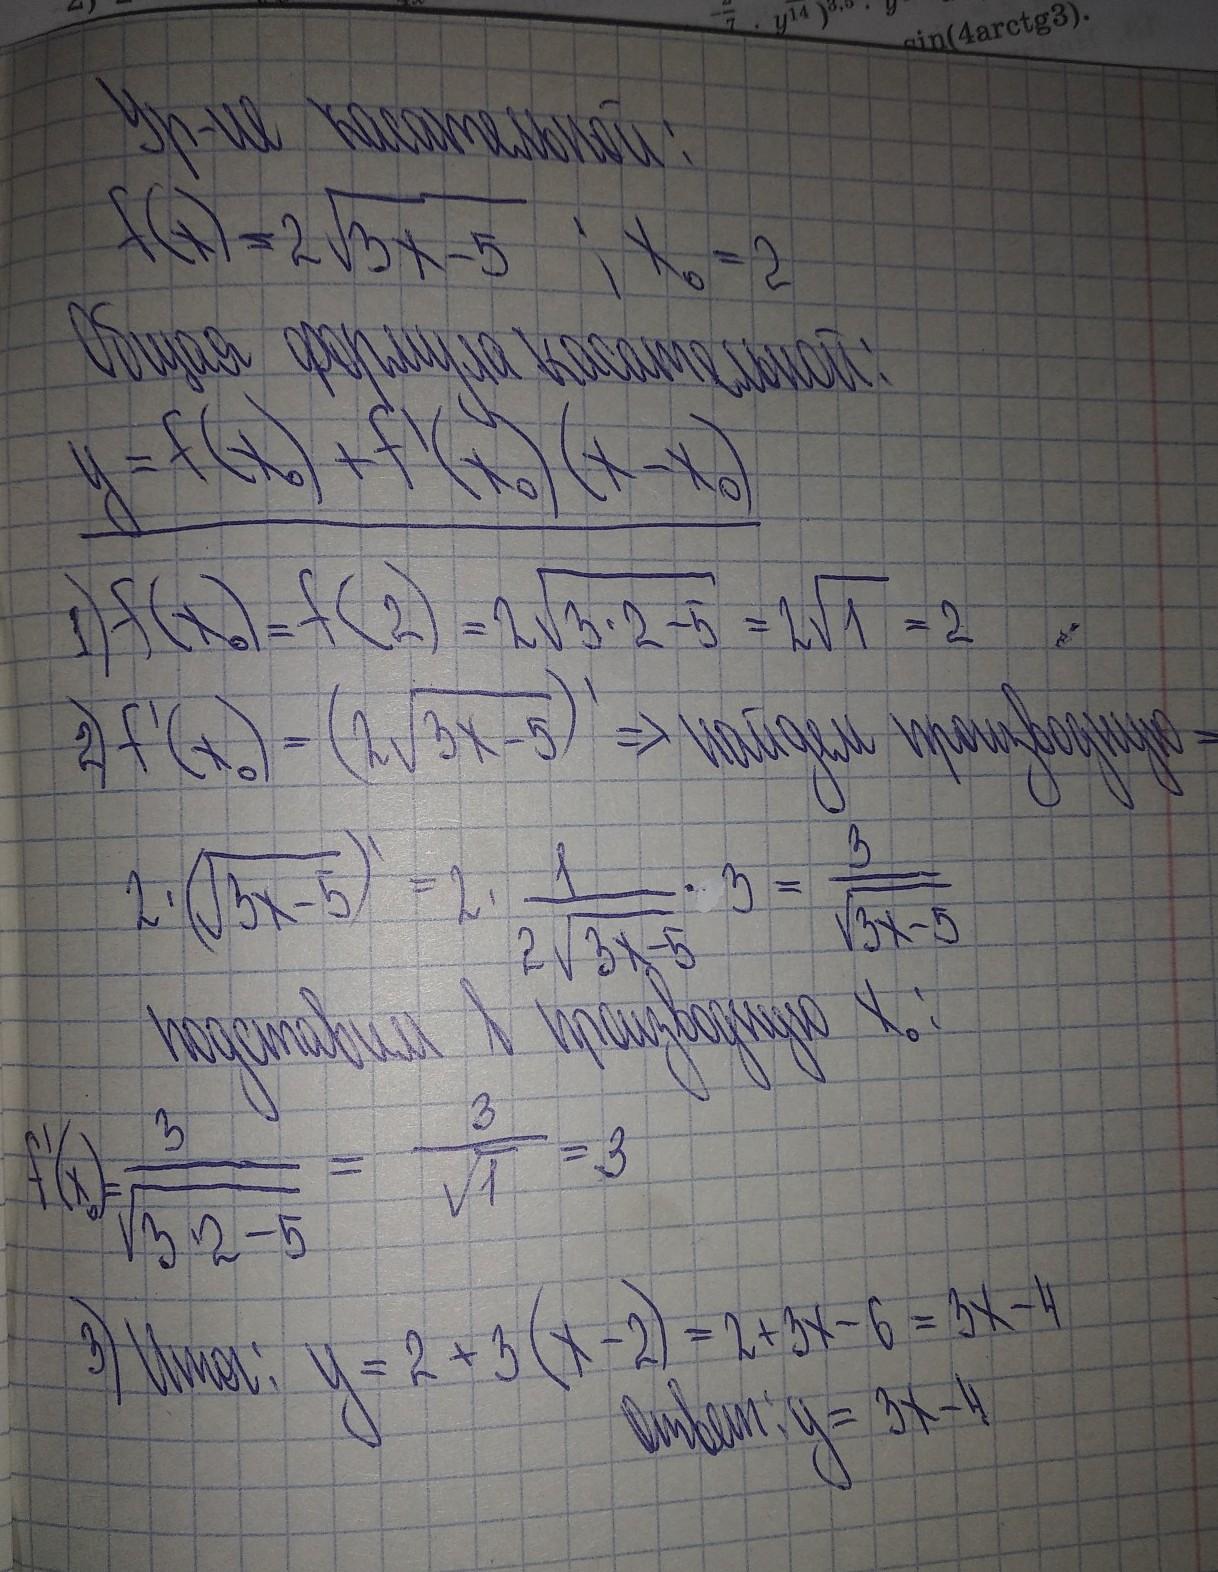 sin(4arctg3).
Ур-ие касательной:
f(x) = 2√(3x-5) ; x₀ = 2
Общая формула касательной:
y = f(x₀) + f'(x₀)(x - x₀)
1) f(x₀) = f(2) = 2√(3·2-5) = 2√1 = 2
2) f'(x₀) = (2√(3x-5))' => найдем производную =
2·(√(3x-5))' = 2· 1/(2√(3x-5)) · 3 = 3/√(3x-5)
подставим в производную x₀:
f'(x₀) = 3/√(3·2-5) = 3/√1 = 3
3) Итог: y = 2 + 3(x-2) = 2+3x-6 = 3x-4
ответ: y = 3x-4